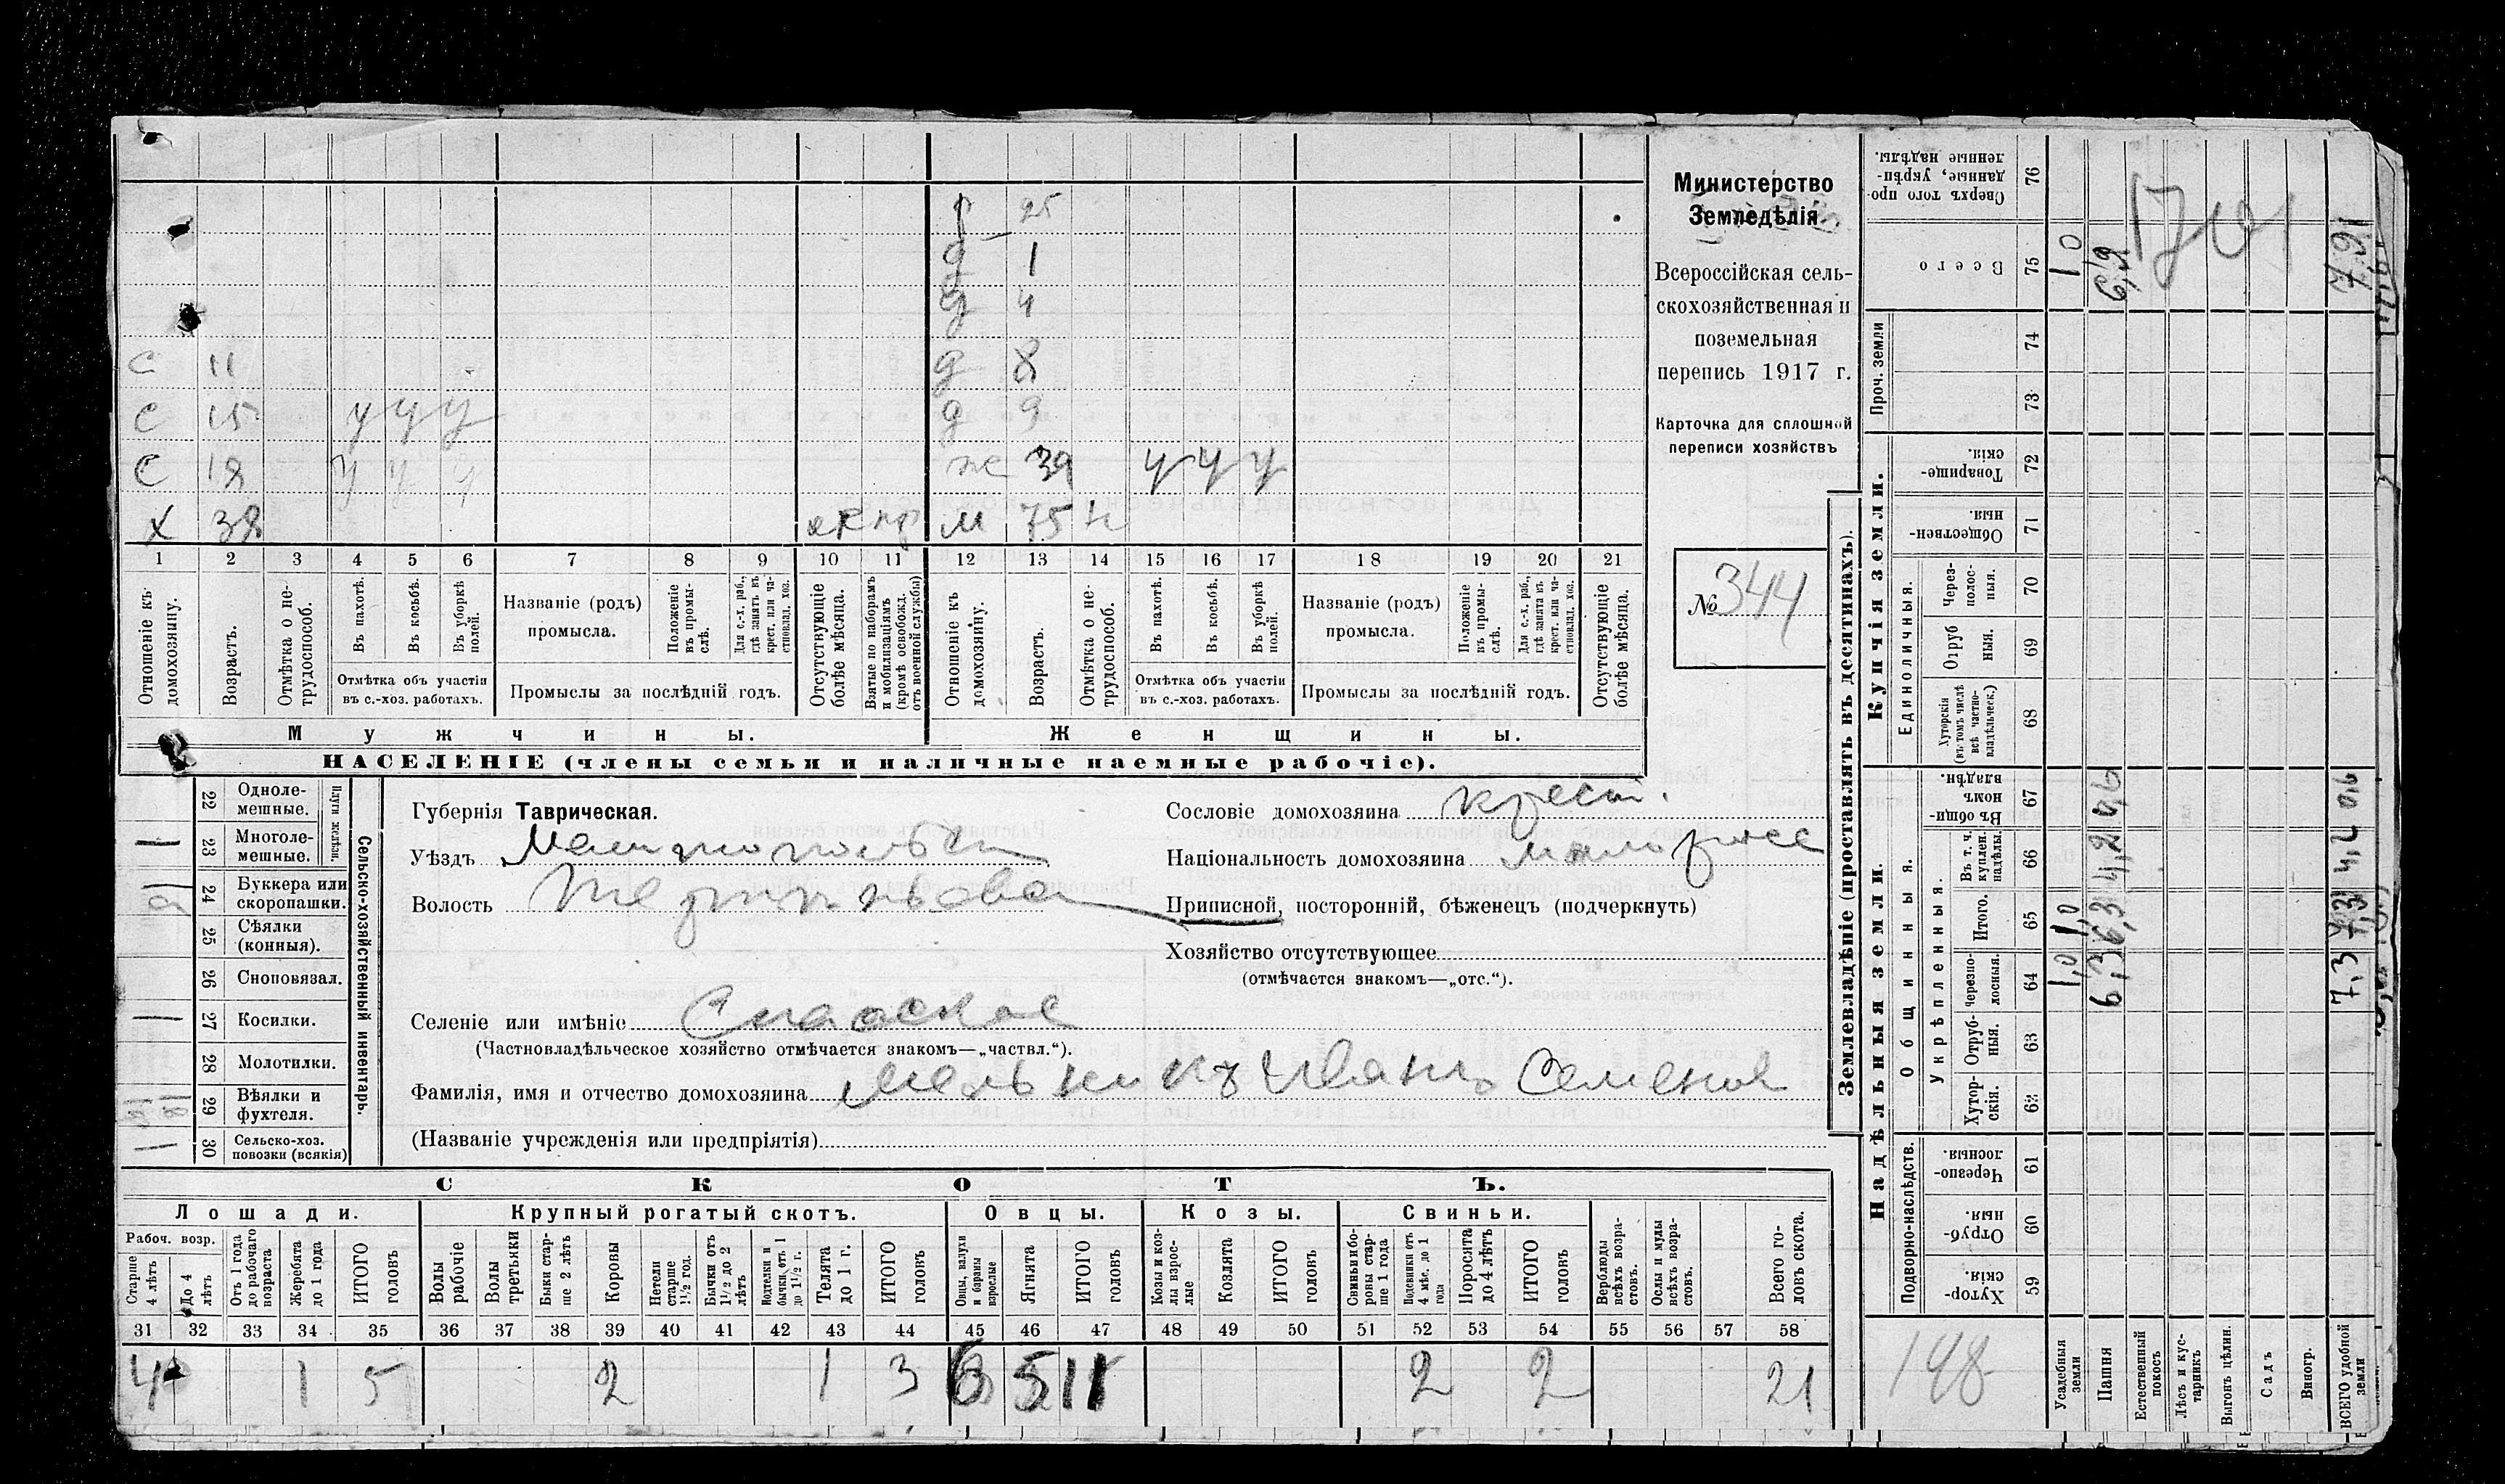 р 25
д 1
д 4
С 11 д 8
С 15 у у у д 9
С 18 у у у ж 39 у у у
Х 38 м 75 н
1 2 3 4 5 6 7 8 9 10 11 12 13 14 15 16 17 18 19 20 21
Отношеніе къ домохозяину.
Возрастъ.
Отмѣтка о не-трудоспособ.
Въ пахотѣ.
Въ косьбѣ.
Въ уборкѣ полей.
Отмѣтка объ участіи
въ с.-хоз. работахъ.
Названіе (родъ)
промысла.
Положеніе въ промы-слѣ.
Для с.-х. раб., гдѣ занятъ въ крест. или ча-стновлад. хоз.
Промыслы за послѣдній годъ.
Отсутствующіе болѣе мѣсяца.
Взятые по наборамъ и мобилизаціямъ (кромѣ освобожд. отъ военной службы)
Отношеніе къ домохозяину.
Возрастъ.
Отмѣтка о не-трудоспособ.
Въ пахотѣ.
Въ косьбѣ.
Въ уборкѣ полей.
Отмѣтка объ участіи
въ с.-хоз. работахъ.
Названіе (родъ)
промысла.
Положеніе въ промы-слѣ.
Для с.-х. раб., гдѣ занята въ крест. или ча-стновлад. хоз.
Промыслы за послѣдній годъ.
Отсутствующіе болѣе мѣсяца.
Мужчины. Женщины.
НАСЕЛЕНІЕ (члены семьи и наличные наемные рабочіе).
Министерство
Земледѣлія
Всероссійская сель-
скохозяйственная и
поземельная
перепись 1917 г.
Карточка для сплошной
переписи хозяйствъ
№ 344
Сельско-хозяйственный инвентарь.
Плуги желѣзн.
22 Одноле-
мешные.
23 Многоле-
мешные.
24 Буккера или
скоропашки.
25 Сѣялки
(конныя).
26 Сноповязал.
27 Косилки.
28 Молотилки.
29 Вѣялки и
фухтеля.
30 Сельско-хоз.
повозки (всякія)
Губернія Таврическая.
Уѣздъ
Волость
Селеніе или имѣніе Спасское
(Частновладѣльческое хозяйство отмѣчается знакомъ—„частвл.“).
Фамилія, имя и отчество домохозяина Мельникъ Иванъ Семенов
(Названіе учрежденія или предпріятія)
Сословіе домохозяина крест.
Національность домохозяина малоросс
Приписной, посторонній, бѣженецъ (подчеркнуть)
Хозяйство отсутствующее
(отмѣчается знакомъ—„отс.“).
СКОТЪ.
Лошади. Крупный рогатый скотъ. Овцы. Козы. Свиньи.
Рабоч. возр.
Старше 4 лѣтъ
До 4 лѣтъ
Отъ 1 года до рабочаго возраста
Жеребята до 1 года
ИТОГО головъ
Волы рабочіе
Волы третьяки
Быки стар-ше 2 лѣтъ
Коровы
Нетели старше 1½ год.
Бычки отъ 1½ до 2 лѣтъ
Подтелки и бычки отъ 1 до 1½ г.
Телята до 1 г.
ИТОГО головъ
Овцы, валухи и бараны взрослые
Ягнята
ИТОГО головъ
Козы и коз-лы взрос-лые
Козлята
ИТОГО головъ
Свиньи и бо-ровы стар-ше 1 года
Подсвинки отъ 4 мѣс. до 1 года
Поросята до 4 лѣтъ
ИТОГО головъ
Верблюды всѣхъ возра-стовъ.
Ослы и мулы всѣхъ возра-стовъ.
Всего го-ловъ скота.
31 32 33 34 35 36 37 38 39 40 41 42 43 44 45 46 47 48 49 50 51 52 53 54 55 56 57 58
4 1 5 2 1 3 6 5 11 2 2 21
Землевладѣніе (проставлять въ десятинахъ).
Надѣльныя земли. Купчія земли. Проч. земли
Подворно-наслѣдств.
Общинныя.
Укрѣпленныя.
Единоличныя.
59 Хутор-скія.
60 Отруб-ныя.
61 Черезпо-лосныя.
62 Хутор-скія.
63 Отруб-ныя.
64 Черезпо-лосныя.
65 Итого.
66 Въ т. ч. куплен. надѣлы.
67 Въ общин-номъ владѣн.
68 Хуторскія (въ томъ числѣ всѣ частно-владѣльческ.)
69 Отруб ныя.
70 Через-полос-ныя.
71 Обществен-ныя.
72 Товарище-скія.
73
74
75 Всего
76 Сверхъ того про-данные, укрѣп-ленные надѣлы.
Усадебныя земли 1,0 1,0 1,0
Пашня 6,3 6,3 4,2 0,6 6,9
Естественный покосъ
Лѣсъ и кус-тарникъ
Выгонъ цѣлин.
Садъ
Виногр.
ВСЕГО удобной земли 7,3 7,3 4,2 0,6 7,9
148